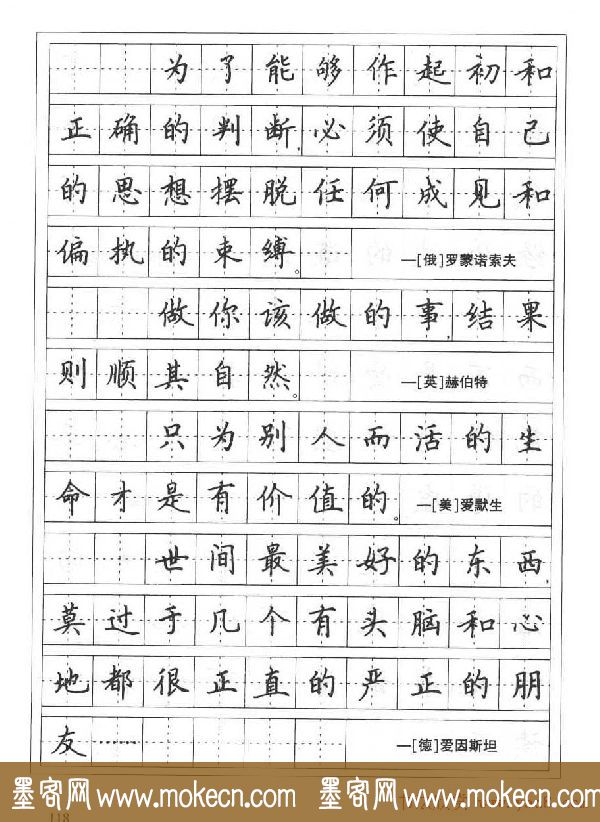 为了能够作起初和
正确的判断,必须使自己
的思想摆脱任何成见和
偏执的束缚。 —[俄]罗蒙诺索夫
做你该做的事,结果
则顺其自然。 —[英]赫伯特
只为别人而活的生
命才是有价值的。 —[美]爱默生
世间最美好的东西,
莫过于几个有头脑和心
地都很正直的严正的朋
友…… —[德]爱因斯坦
墨客网 www.mokecn.com 墨客网 www.mokecn.com
118